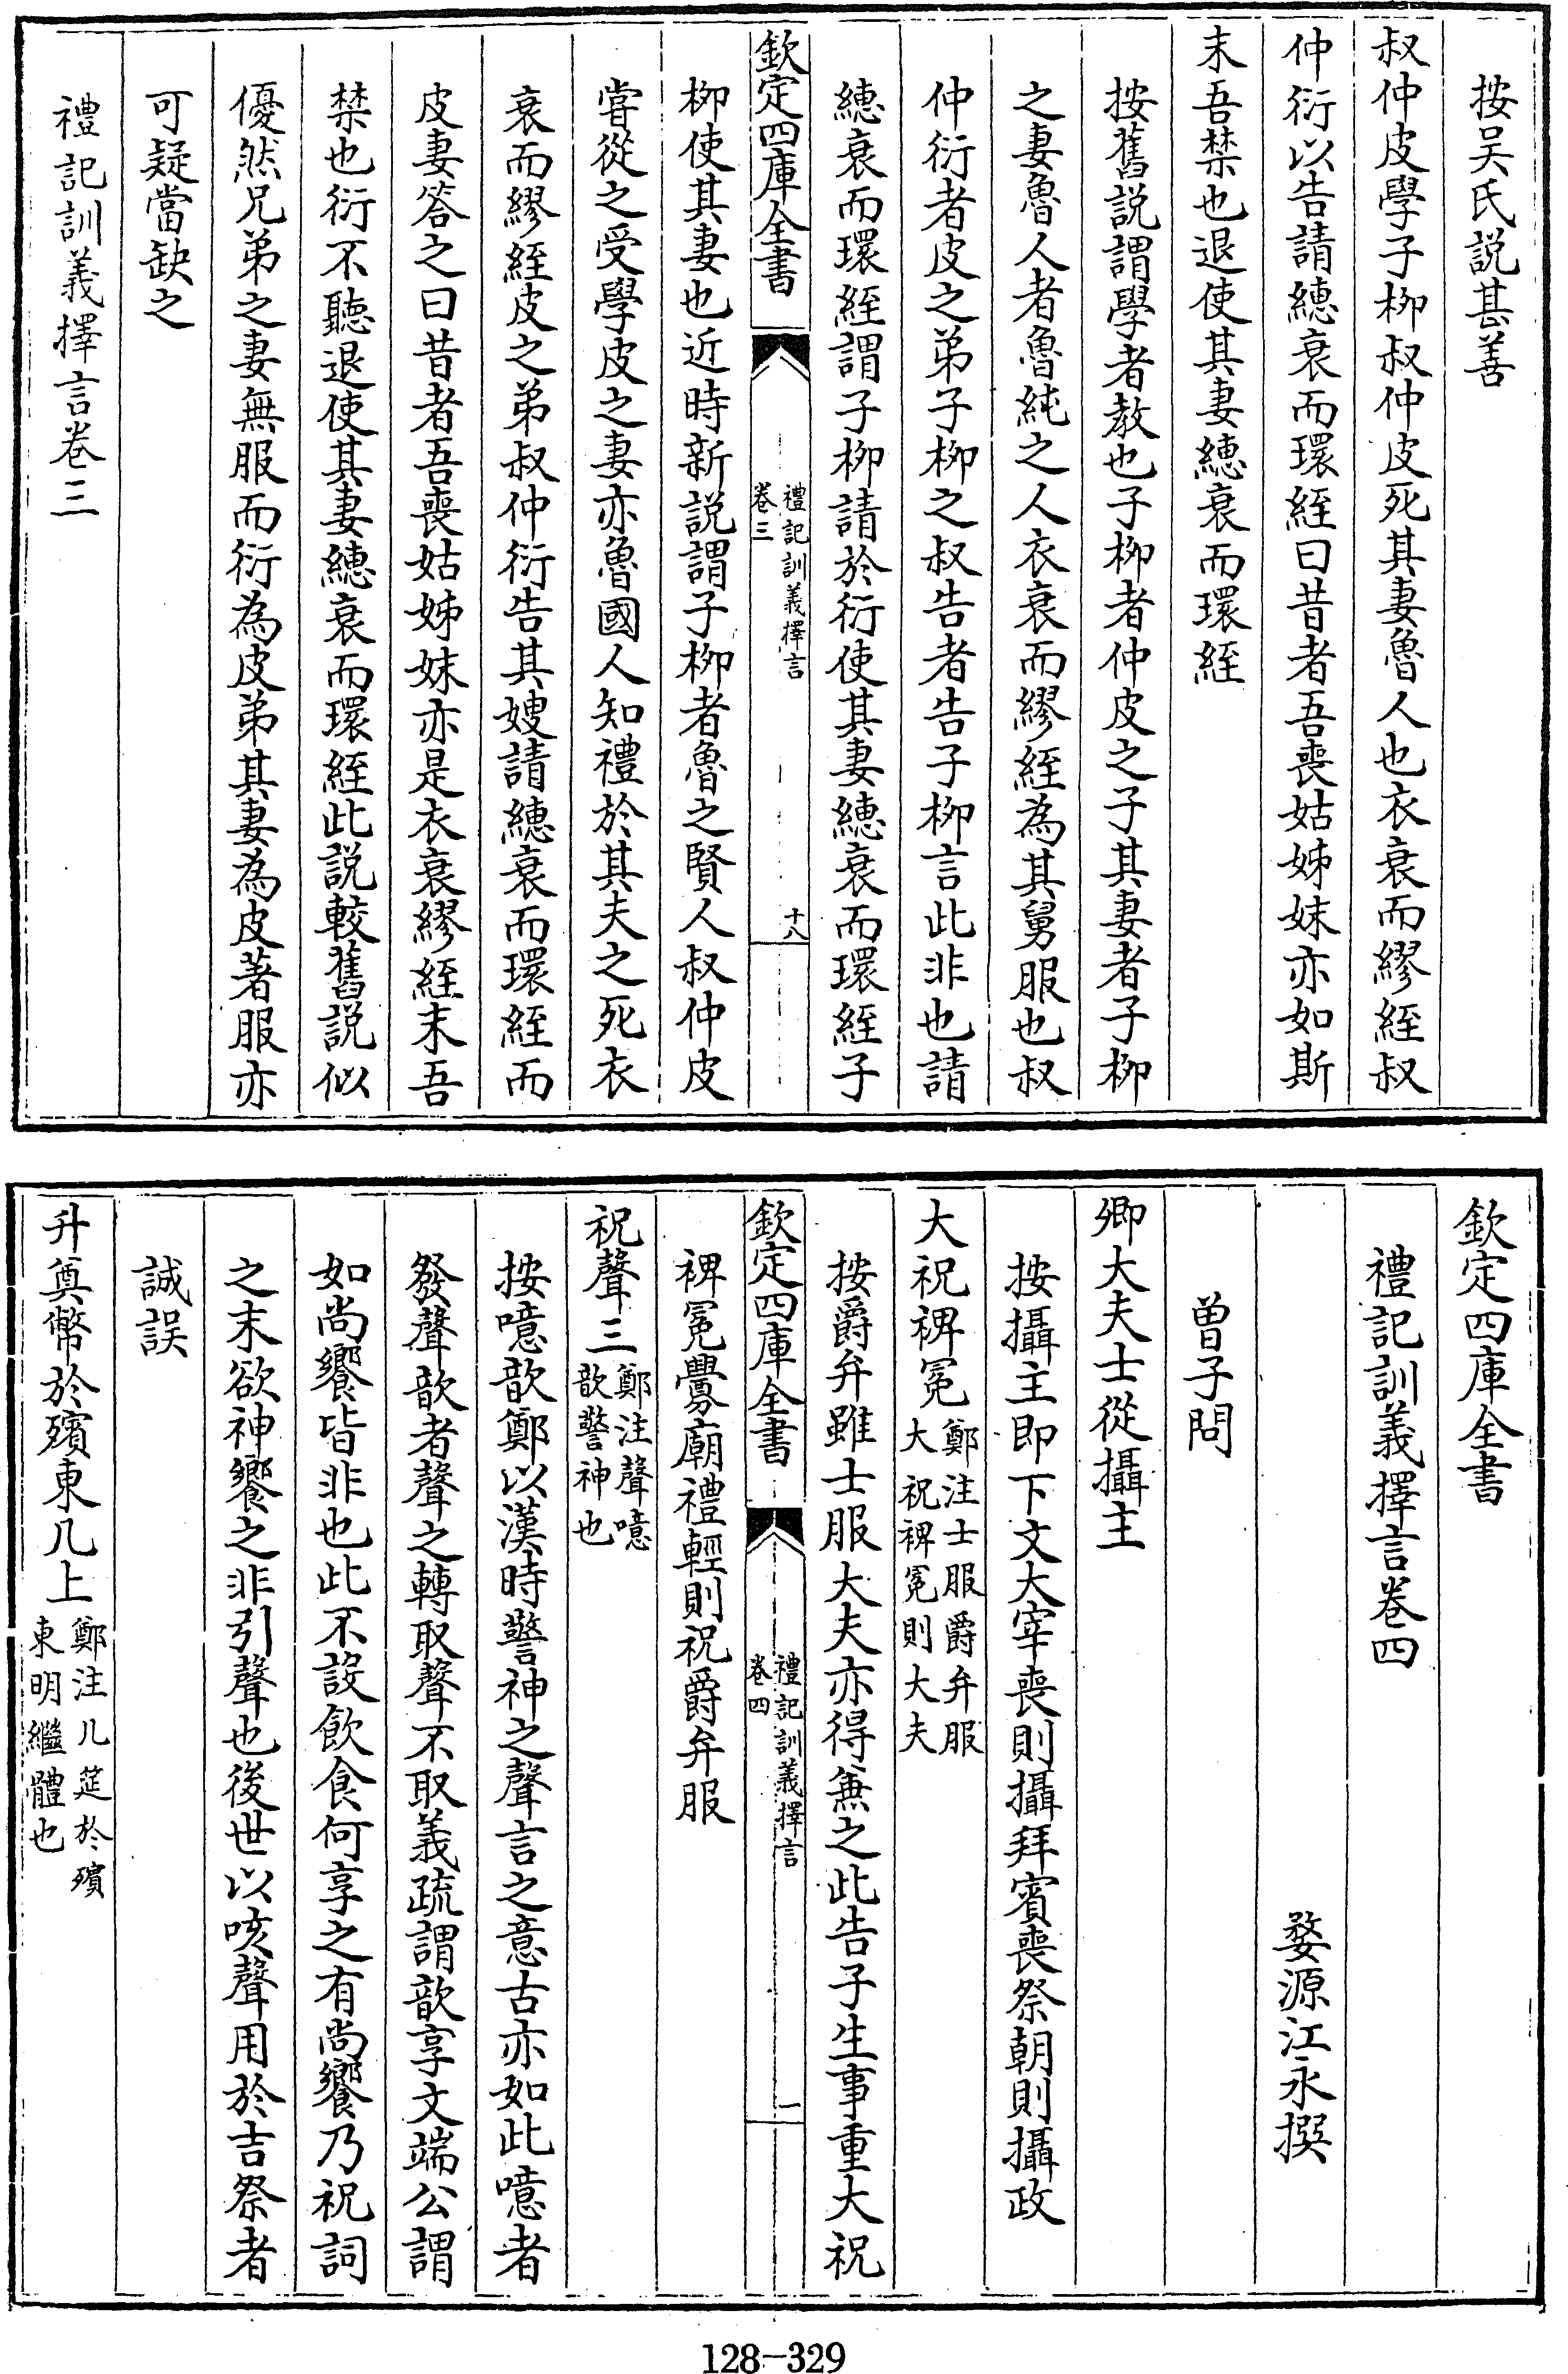 按吴氏説甚善
叔仲皮學子柳叔仲皮死其妻魯人也衣衰而繆絰叔
仲衍以告請繐衰而環絰曰昔者吾喪姑姊妹亦如斯
末吾禁也退使其妻繐衰而環絰
按舊説謂學者教也子柳者仲皮之子其妻者子柳
之妻魯人者魯純之人衣衰而繆絰為其舅服也叔
仲衍者皮之弟子柳之叔告者告子柳言此非也請
繐衰而環絰謂子柳請於衍使其妻繐衰而環絰子
欽定四庫全書
禮記訓義擇言
卷三
十八
柳使其妻也近時新説謂子柳者魯之賢人叔仲皮
嘗從之受學皮之妻亦魯國人知禮於其夫之死衣
衰而繆絰皮之弟叔仲衍告其嫂請繐衰而環絰而
皮妻答之曰昔者吾喪姑姊妹亦是衣衰繆絰末吾
禁也衍不聽退使其妻繐衰而環絰此説較舊説似
優然兄弟之妻無服而衍為皮弟其妻為皮著服亦
可疑當缺之
禮記訓義擇言卷三
欽定四庫全書
禮記訓義擇言卷四
婺源江永撰
曾子問
卿大夫士從攝主
按攝主即下文大宰喪則攝拜賓喪祭朝則攝政
大祝裨冕鄭注士服爵弁服
大祝裨冕則大夫
按爵弁雖士服大夫亦得兼之此告子生事重大祝
欽定四庫全書
禮記訓義擇言
卷四
一
裨冕釁廟禮輕則祝爵弁服
祝聲三鄭注聲噫
歆警神也
按噫歆鄭以漢時警神之聲言之意古亦如此噫者
發聲歆者聲之轉取聲不取義疏謂歆享文端公謂
如尚饗皆非也此不設飲食何享之有尚饗乃祝詞
之末欲神饗之非引聲也後世以咳聲用於吉祭者
誠誤
升奠幣於殯東几上鄭注几筵於殯
東明繼體也
128-329